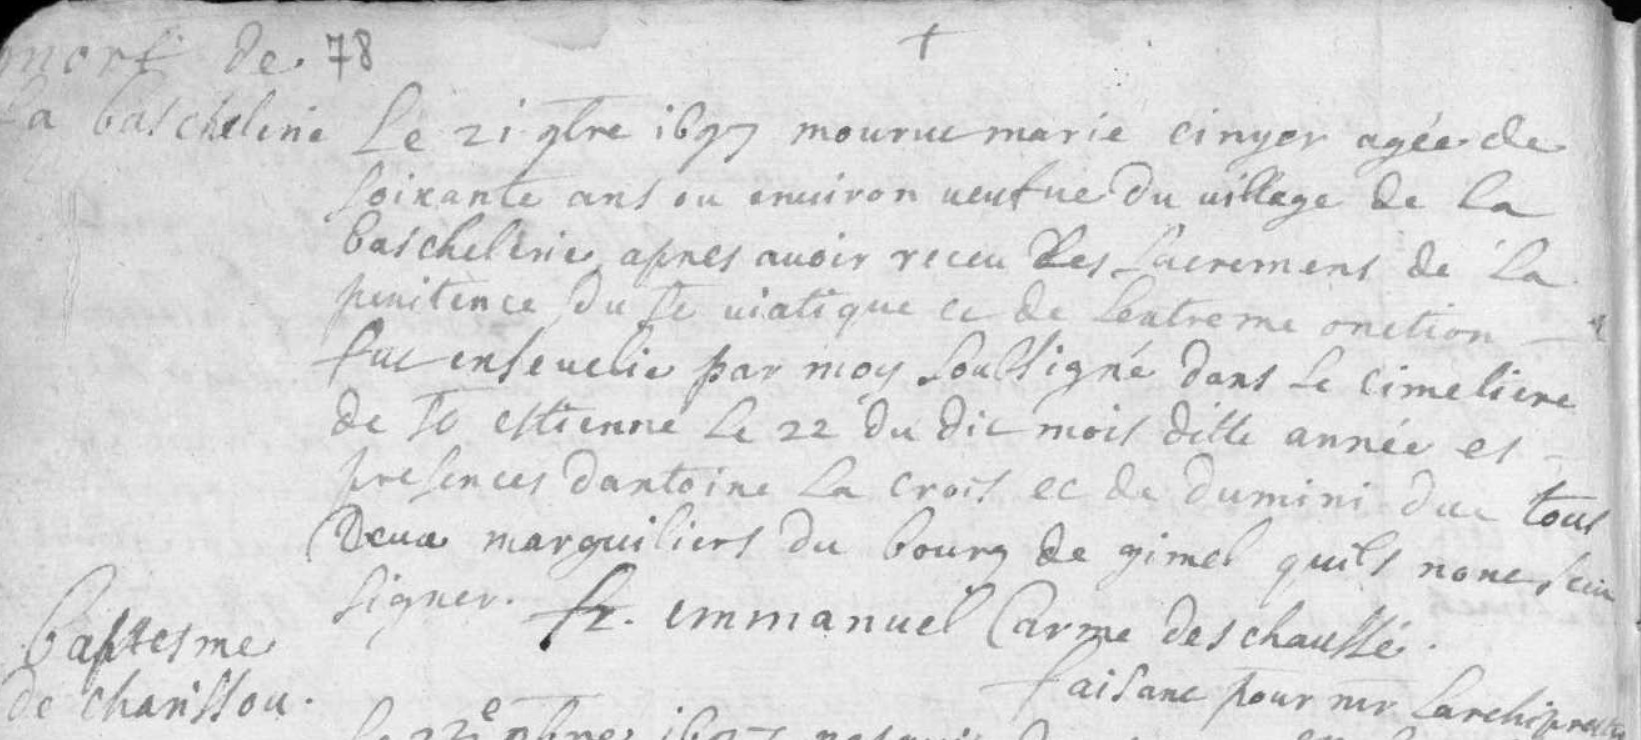 mort de 78
la baschelerie
Le 21 9bre 1697 mourut marie cinyer agée de
soixante ans ou environ veufve du village de la
baschelerie apres avoir receu Les sacremens de la
penitence du st viatique et de lextreme onction
fut ensevelie par moy soulsigné dans le cimetiere
de st estienne le 22 du dit mois ditte année et
presences dantoine la crois et de dumini duc tous
Deux marguiliers du bourg de gimel quils nont sceu
signer. fr. emmanuel Carme deschaussé.
faisant pour mr larchiprestre
baptesme
de charissou.
Le 22e 9bre 1697